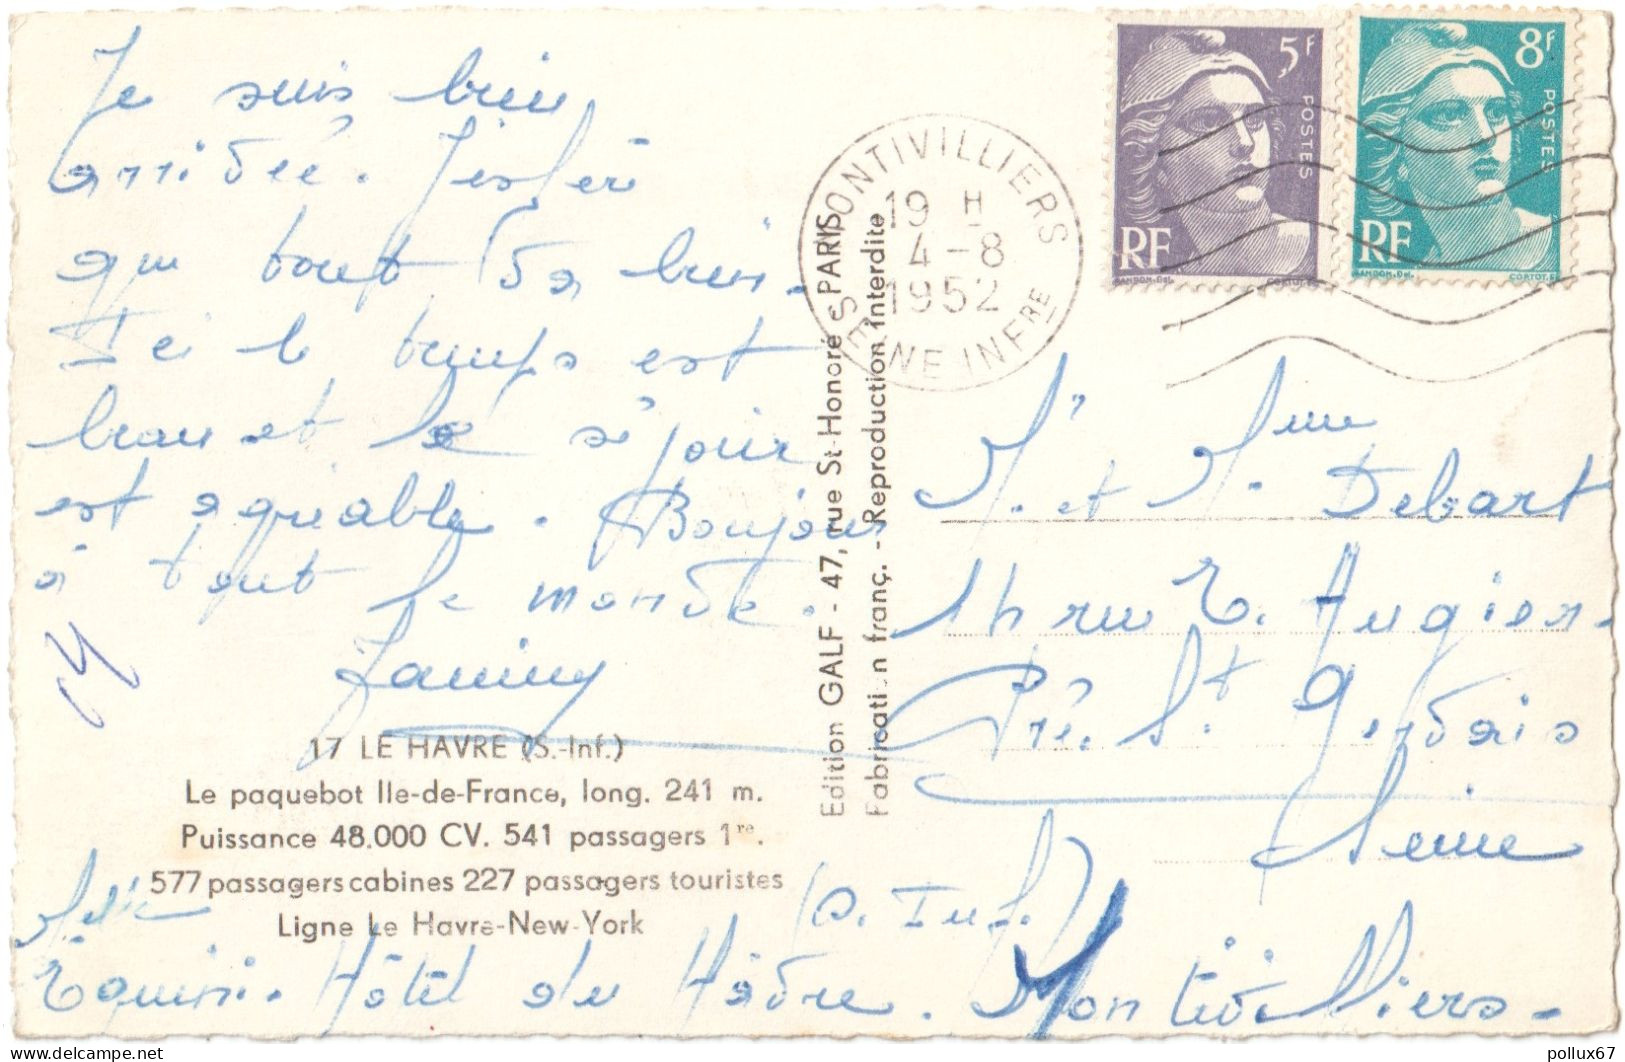 Je suis bien
arrivée. J'espère
que tout va bien.
Ici le temps est
beau et le séjour
est agréable. Bonjour
à tout le monde.
17 LE HAVRE (S.-Inf.)
Le paquebot Ile-de-France, long. 241 m.
Puissance 48.000 CV. 541 passagers 1re.
577 passagers cabines 227 passagers touristes
Ligne Le Havre-New-York
Hôtel du Hâvre. Montivilliers.
(S. Inf.)
Edition GALF - 47, rue St-Honoré - PARIS
Fabrication franç. - Reproduction interdite
MONTIVILLIERS
19 H
4-8
1952
SEINE INFRE
5F
POSTES
RF
GANDON.Del.
CORTOT.S
8F
POSTES
RF
GANDON.Del.
CORTOT.S
M. et Mme
Debart
rue E. Augier
Pré St Gervais
Seine
pollux67